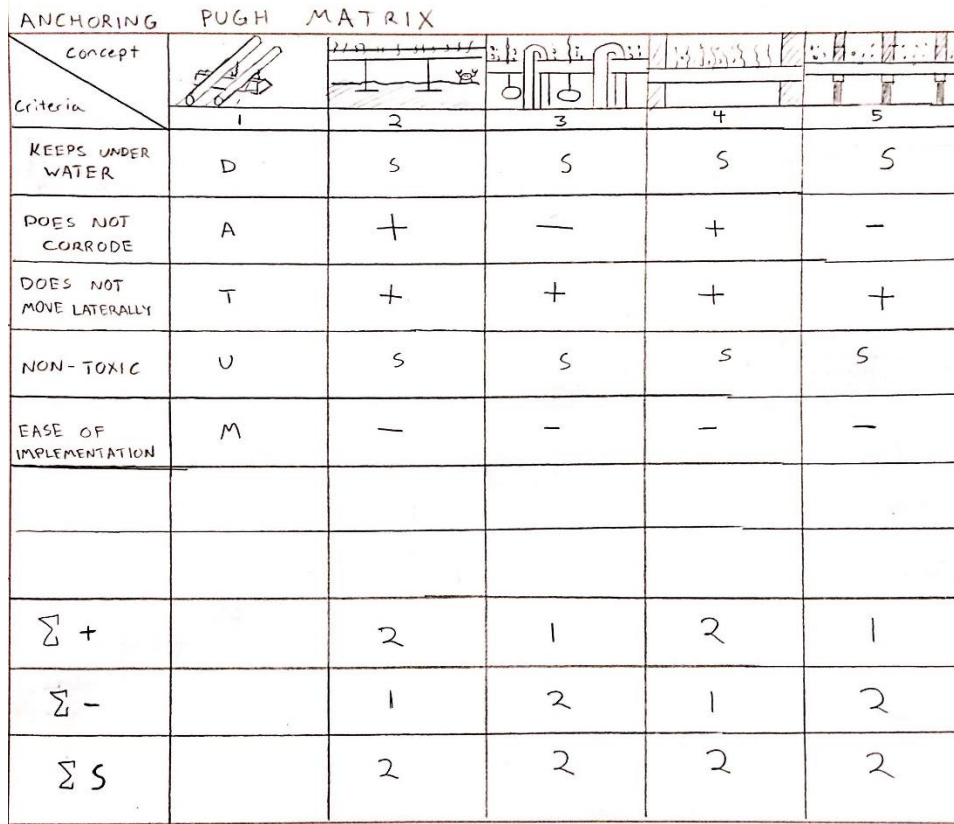 ANCHORING PUGH MATRIX
Concept
Criteria
1 2 3 4 5
KEEPS UNDER
WATER
D S S S S
DOES NOT
CORRODE
A + — + -
DOES NOT
MOVE LATERALLY
T + + + +
NON-TOXIC
U S S S S
EASE OF
IMPLEMENTATION
M — - - -
Σ + 2 1 2 1
Σ - 1 2 1 2
Σ S 2 2 2 2